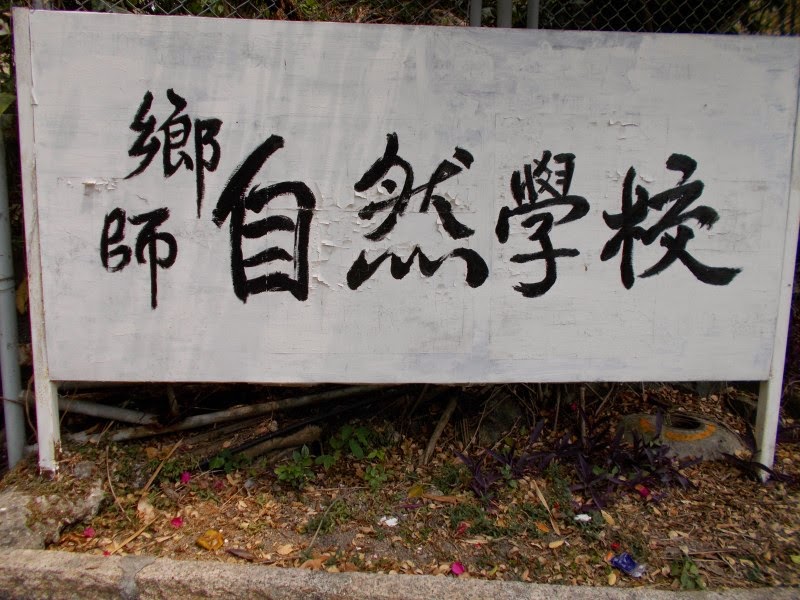 鄉師
自然學校